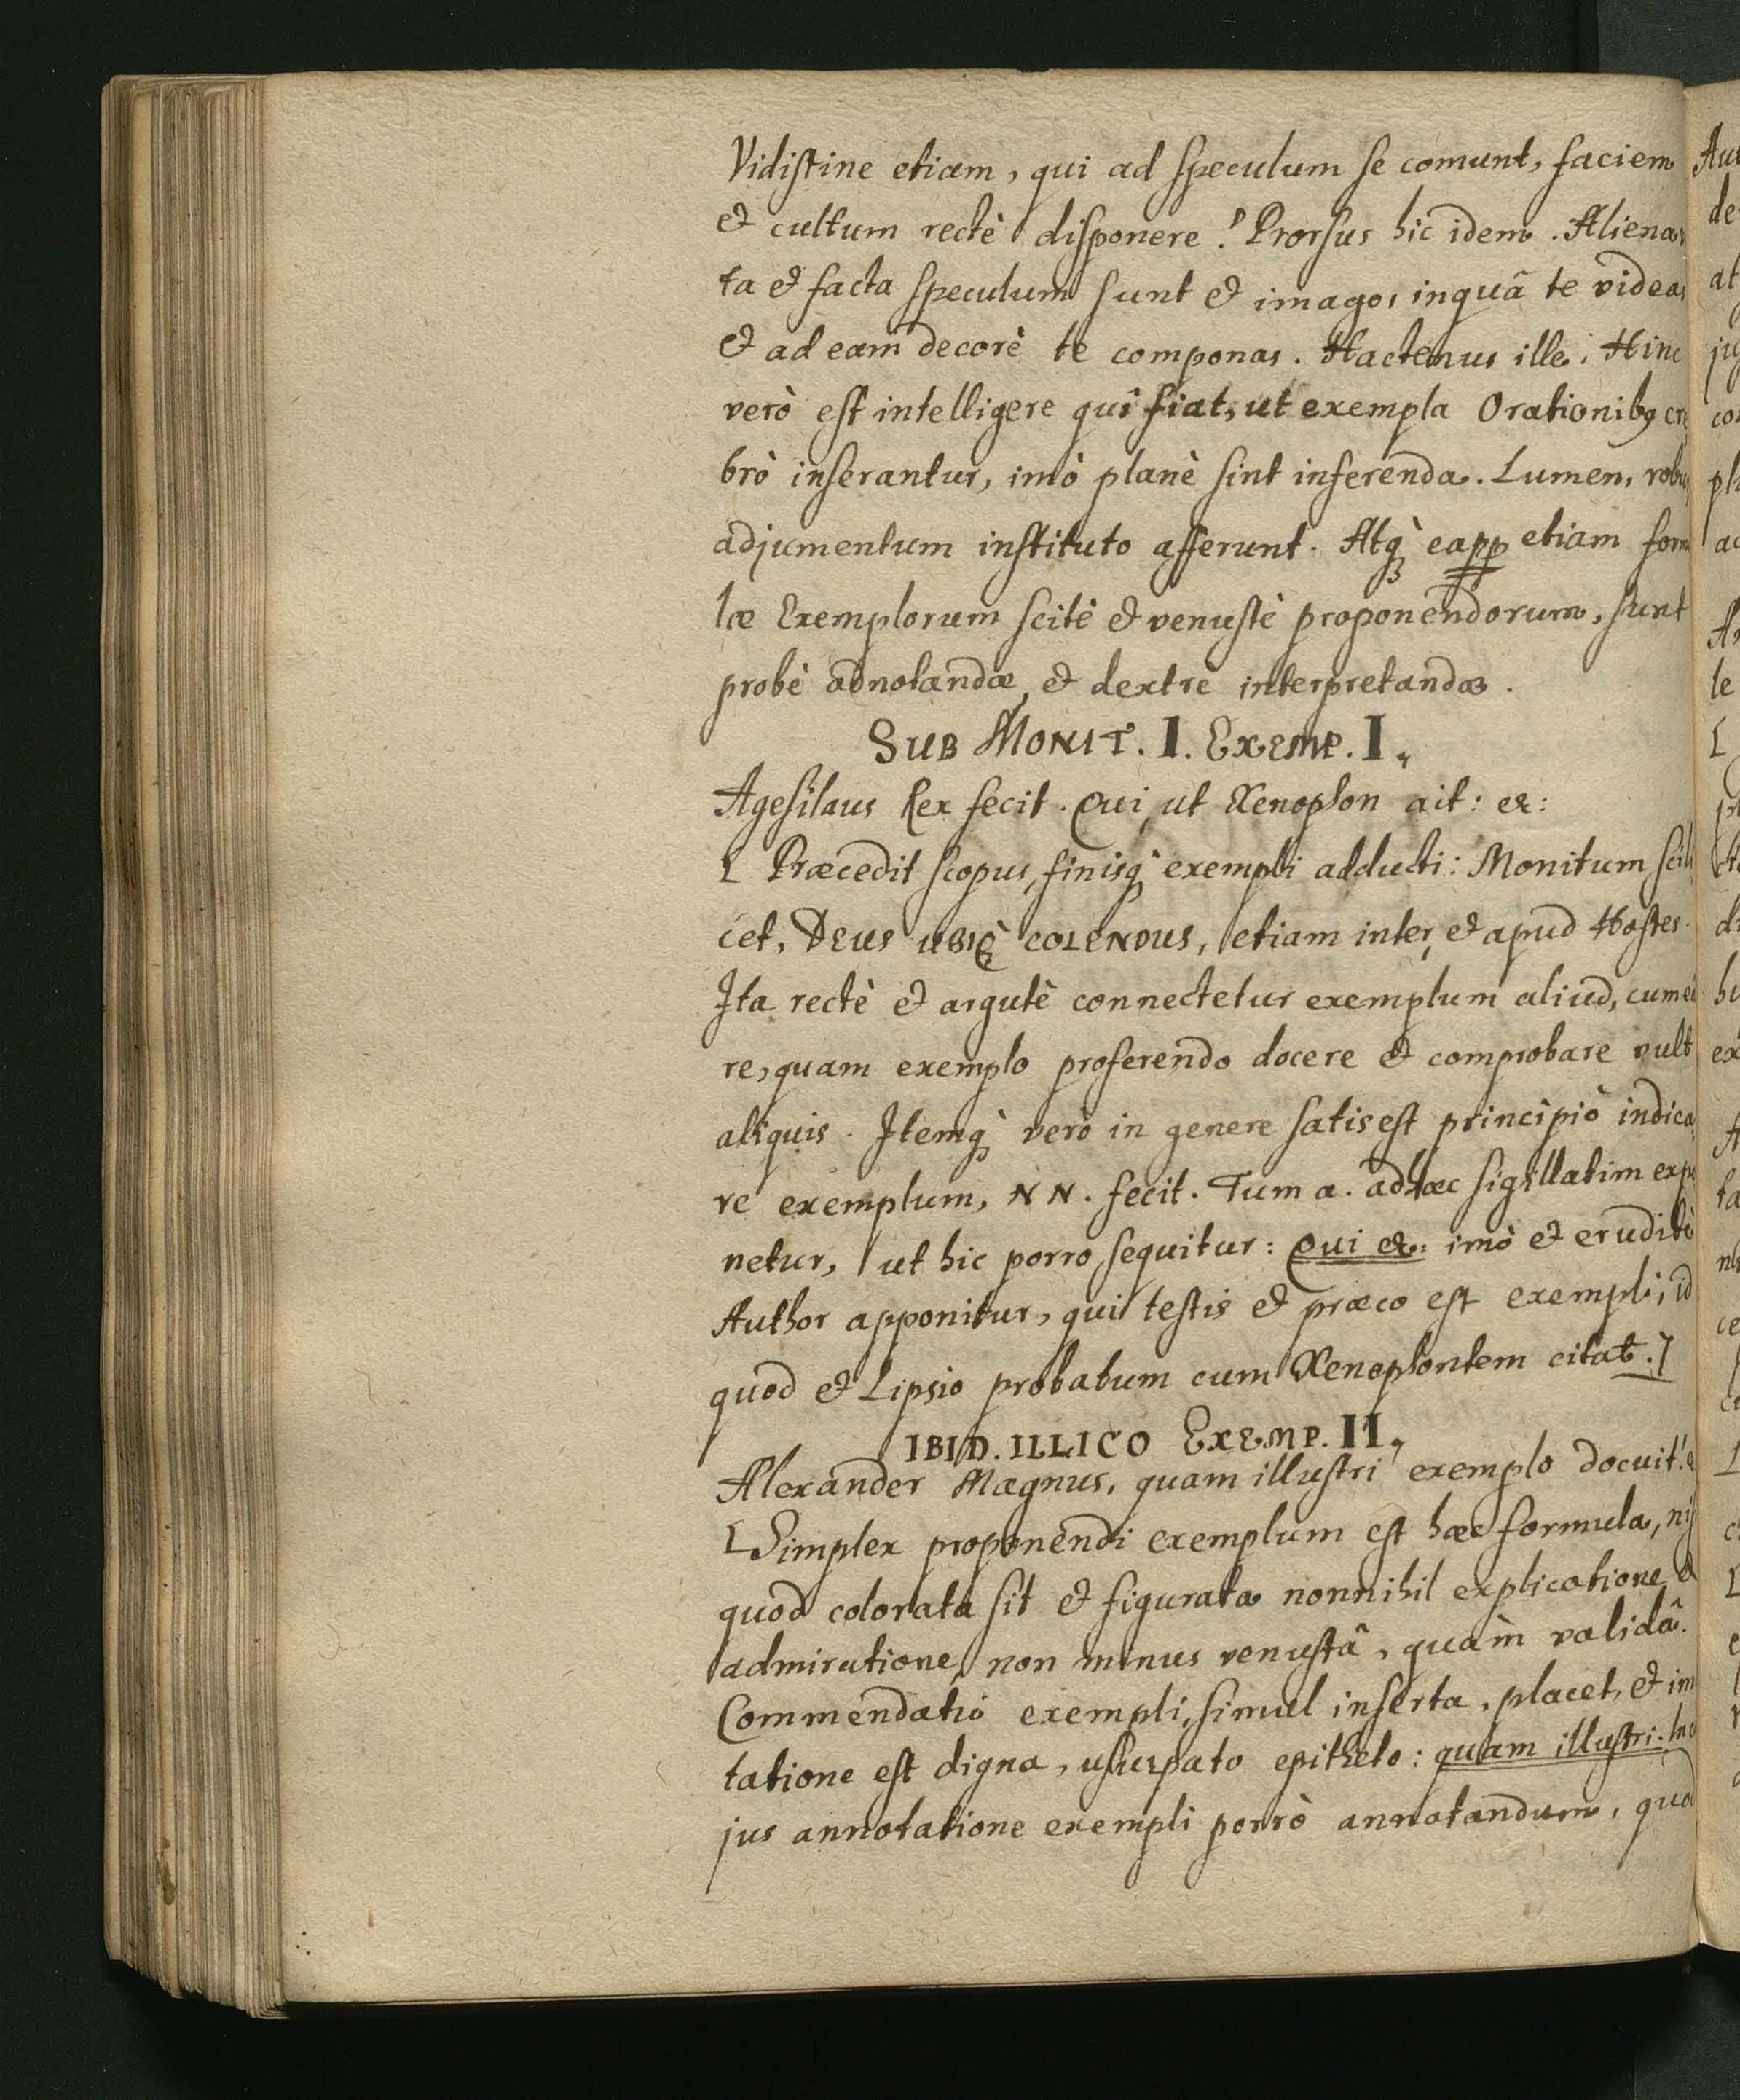 Vidistine etiam, qui ad speculum se comunt, faciem
& cultum rectè disponere? Prorsus hic idem. Aliena
ta & facta speculum sunt & imago, in quâ te videas
& ad eam decorè te componas. Hactenus ille. Hinc
verò est intelligere quî fiat, ut exempla Orationibꝯ cre
brò inserantur, imò planè sint inferenda. Lumen, robur
adjumentum instituto afferunt. Atqꝫ eapp etiam form
læ Exemplorum scitè & venustè proponendorum, sunt
probè adnotandæ, & dextrè interpretandæ.
SUB MONIT. I. EXEMP. I.
Agesilaus Rex fecit. Qui, ut Xenophon ait: &:
[ Præcedit scopus, finisqꝫ exempli adducti: Monitum scili
cet, DEUS UBIQꝫ COLENDUS, etiam inter, & apud Hostes.
Ita rectè & argutè connectetur exemplum aliud, cum eâ
re, quam exemplo proferendo docere & comprobare vult
aliquis. Itemqꝫ verò in genere satis est principiò indica
re exemplum, NN. fecit. Tum a. adhæc sigillatim expo
netur, ut hic porro sequitur: Qui &: imò & eruditè
Author apponitur, qui testis & præco est exempli, id
quod & Lipsio probatum cum Xenophontem citat.]
IBID. ILLICO EXEMP. II.
Alexander Magnus, quam illustri exemplo docuit! &
[ Simplex proponendi exemplum est hæc formula, nisi
quod colorata sit & figurata nonnihil explicatione, &
admiratione, non minus venustâ, quàm validâ.
Commendatio exempli, simul inserta, placet, & imi
tatione est digna, usurpato epitheto: quam illustri. In
jus annotatione exempli porrò annotandum, quo